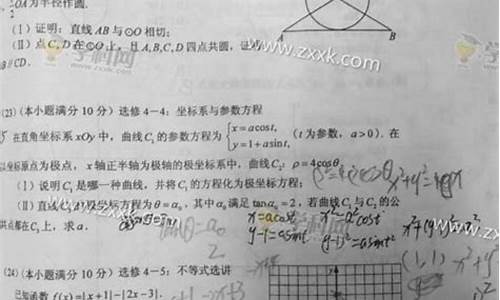 OA为半径作圆.
(Ⅰ)证明：直线 AB 与⊙O 相切；
(Ⅱ)点 C, D 在⊙O 上，且 A,B,C,D 四点共圆，证
∥CD.
A
B
学科网
www.zxxk.com
(23)(本小题满分 10 分）选修 4－4：坐标系与参数方程
在直角坐标系 xOy 中，曲线 C₁ 的参数方程为 { x=acost, y=1+asint, (t 为参数，a>0). 在
以坐标原点为极点，x 轴正半轴为极轴的极坐标系中，曲线 C₂：ρ=4cosθ.
(Ⅰ)说明 C₁ 是哪一种曲线，并将 C₁ 的方程化为极坐标方程；
(Ⅱ)直线 C₃ 的极坐标方程为 θ=α₀，其中 α₀ 满足 tanα₀=2，若曲线 C₁ 与 C₂ 的公
共点都在 C₃ 上，求 a.
x=acost
y-1=asint
www.zxxk.com
(24)(本小题满分 10 分）选修 4－5：不等式选讲
已知函数 f(x)=|x+1|-|2x-3|.